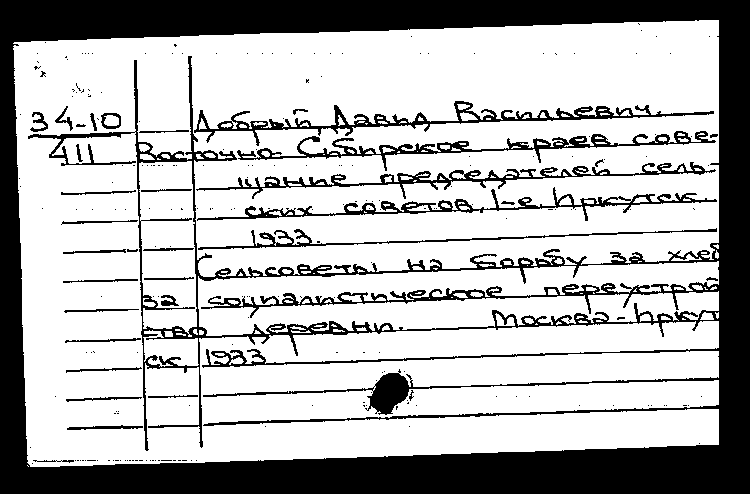 34-10 Добрый, Давид Васильевич.
411 Восточно-Сибирское краев. сове-
щание председателей сель-
ских советов, 1-е. Иркутск.
1933.
Сельсоветы на борьбу за хлеб
за социалистическое переустрой
ство деревни. Москва-Иркут
ск, 1933